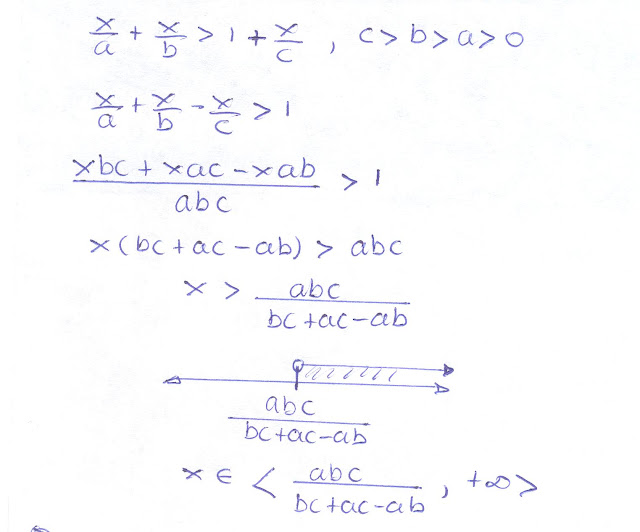 x/a + x/b > 1 + x/c , c > b > a > 0
x/a + x/b - x/c > 1
(xbc + xac - xab)/abc > 1
x(bc + ac - ab) > abc
x > abc/(bc + ac - ab)
abc/(bc + ac - ab)
x ∈ < abc/(bc + ac - ab) , +∞ >